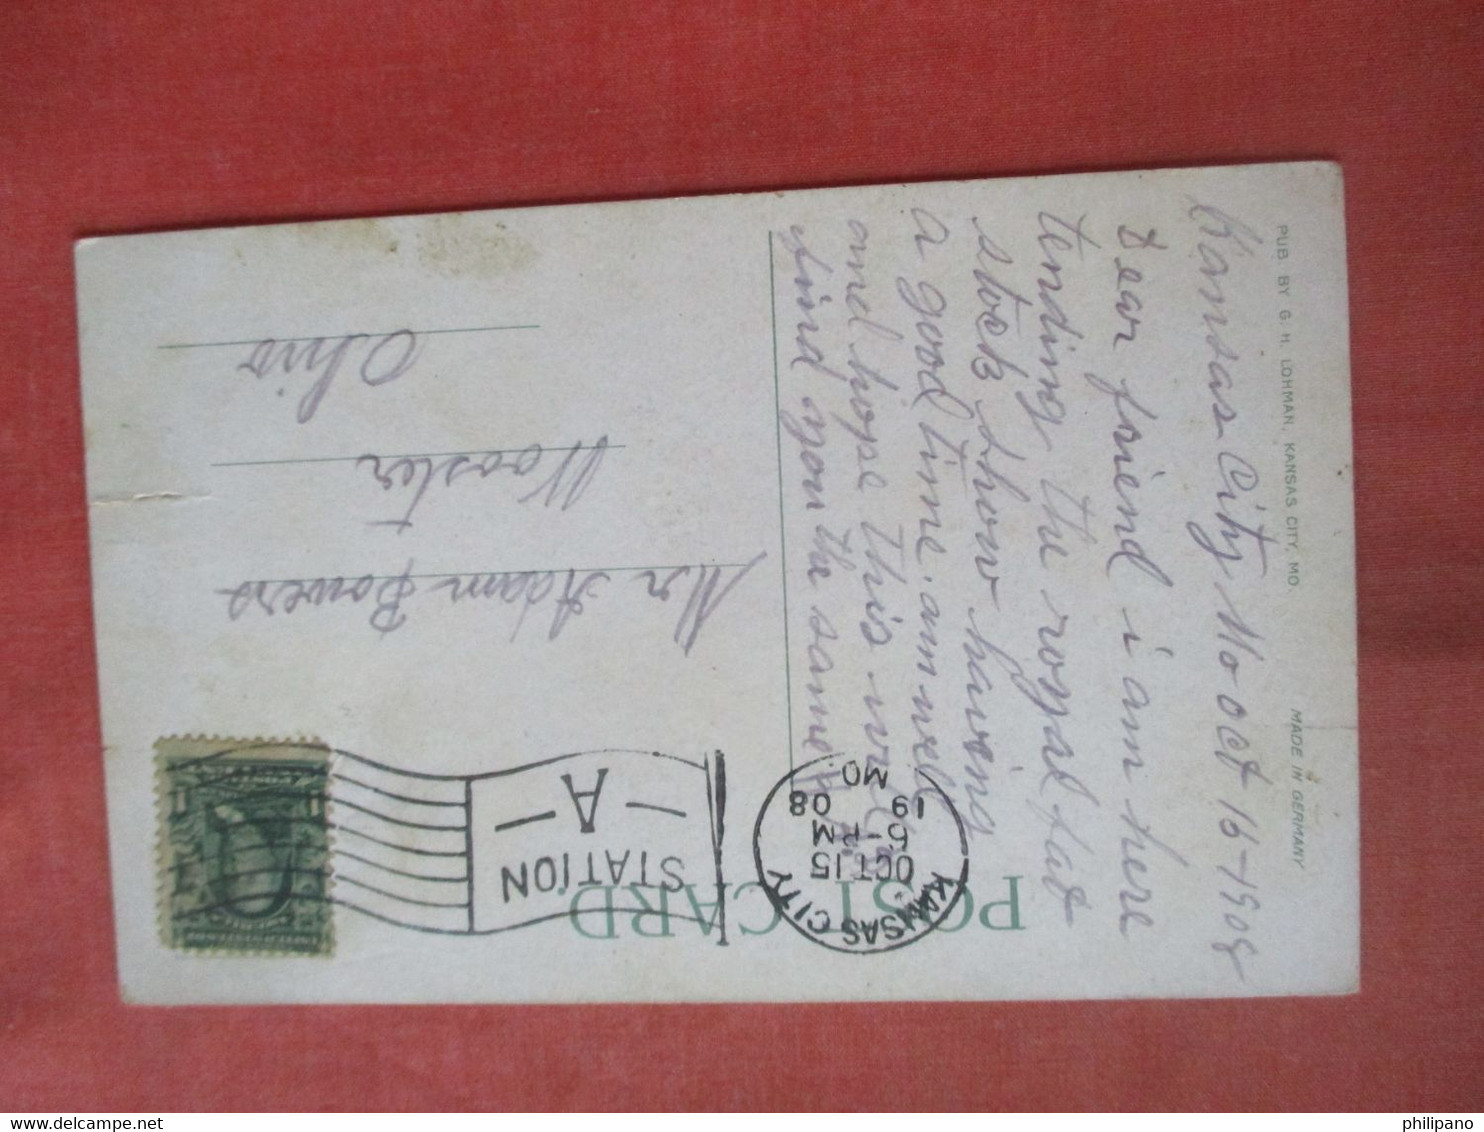 PUB. BY G. H. LOHMAN, KANSAS CITY, MO. MADE IN GERMANY
Kansas City Mo oct 16-1908
Dear friend i am here
tending the royal fat
stock show having
a good time. am well
and hope this will
find you the same
POST CARD.
KANSAS CITY
OCT 15
5-PM
19 08
MO
STATION
— A —
Mr Adam Bowers
Wooster
Ohio
philipano